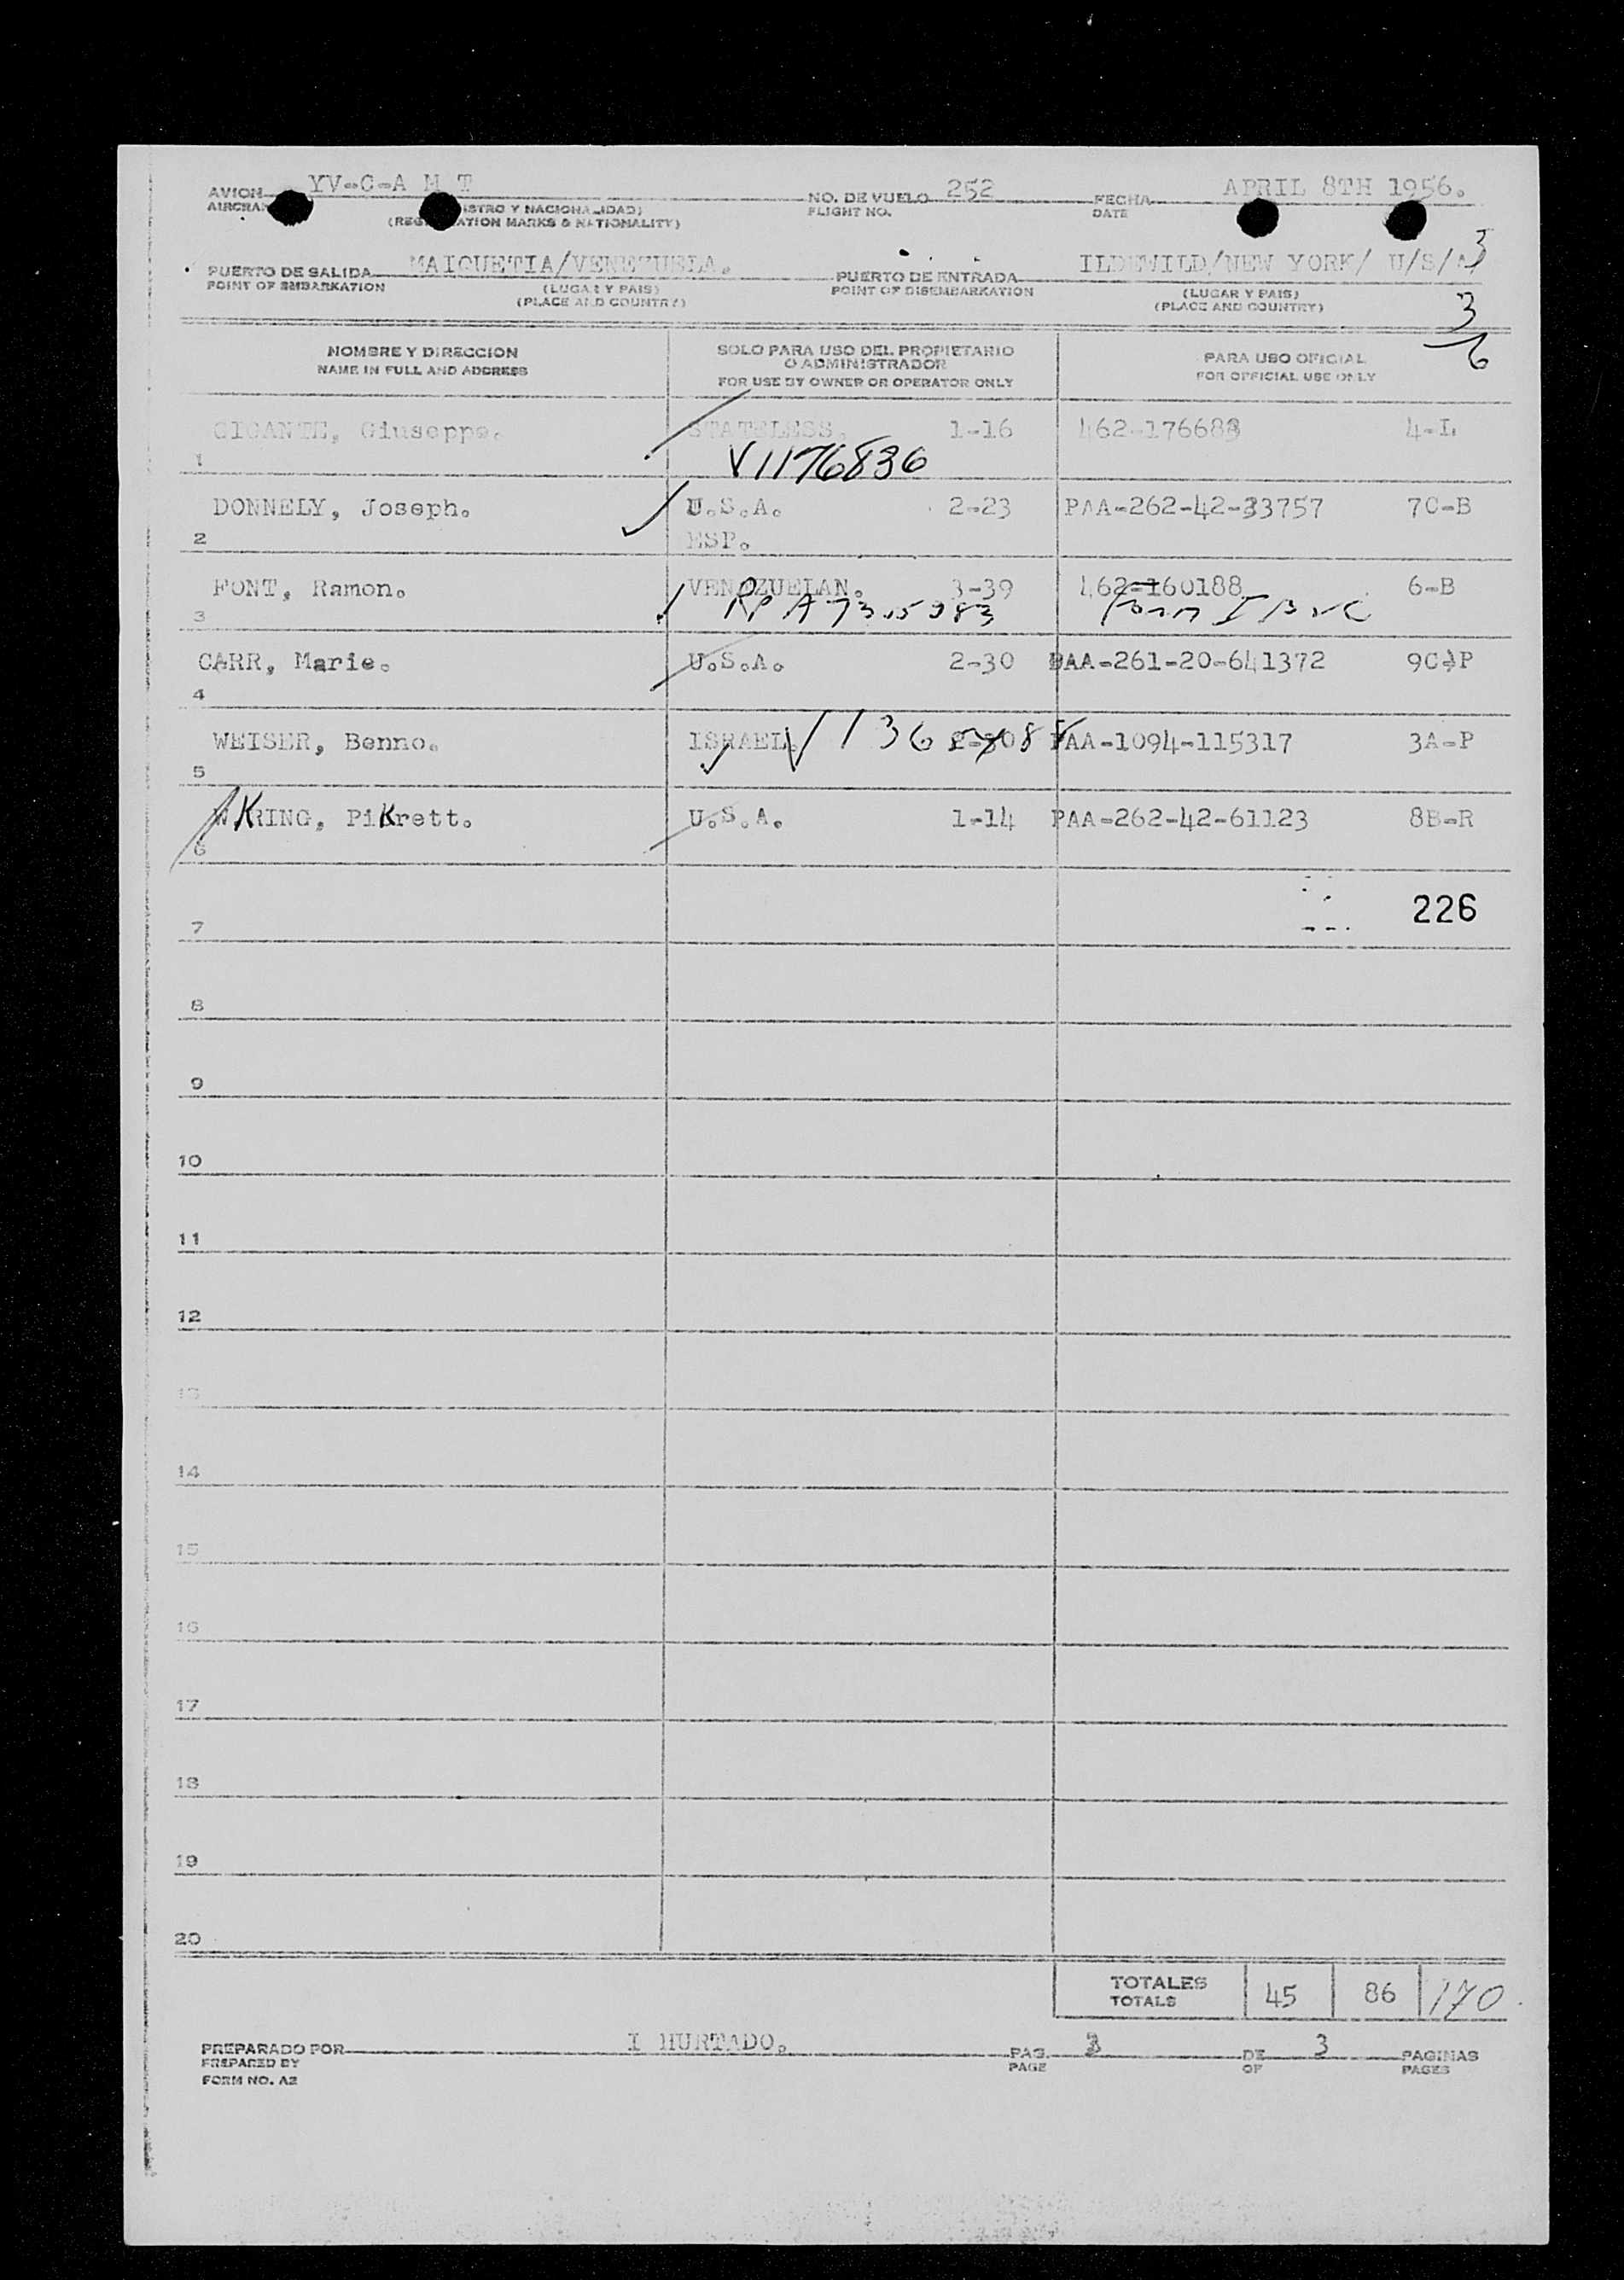 AVION YV-C-A M T NO. DE VUELO 252 FECHA APRIL 8TH 1956.
FLIGHT NO. DATE
(REG ATION MARKS & NATIONALITY)
PUERTO DE SALIDA MAIQUETIA/VENEZUELA. PUERTO DE ENTRADA ILDEWILD/NEW YORK/ U/S/A/ 3
POINT OF EMBARKATION (LUGAR Y PAIS) POINT OF DISEMBARKATION (LUGAR Y PAIS)
(PLACE AND COUNTRY) (PLACE AND COUNTRY)
3
6
NOMBRE Y DIRECCION SOLO PARA USO DEL PROPIETARIO O ADMINISTRADOR PARA USO OFICIAL
NAME IN FULL AND ADDRESS FOR USE BY OWNER OR OPERATOR ONLY FOR OFFICIAL USE ONLY
GIGANTE, Giuseppe. STATELESS. 1-16 462-176688 4-L
1 V1176836
DONNELY, Joseph. U.S.A. 2-23 PAA-262-42-33757 7C-B
2 ESP.
FONT, Ramon. VENEZUELAN. 3-39 462-160188 6-B
3 RP A7305983
CARR, Marie. U.S.A. 2-30 PAA-261-20-641372 9C-P
4
WEISER, Benno. ISRAEL. PAA-1094-115317 3A-P
5
RING, Pikrett. U.S.A. 1-14 PAA-262-42-61123 8B-R
6
7 226
8
9
10
11
12
13
14
15
16
17
18
19
20
TOTALES 45 86 170
TOTALS
PREPARADO POR I HURTADO. PAG. 3 DE 3 PAGINAS
PREPARED BY PAGE OF PAGES
FORM NO. A2